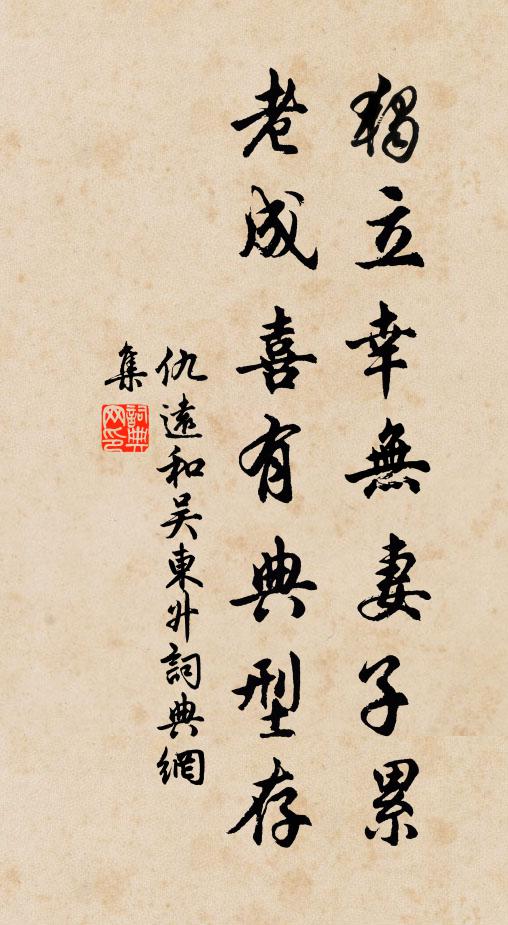 獨立幸無妻子累
老成喜有典型存
仇遠和吴東升詞典網
集
詞典
网印